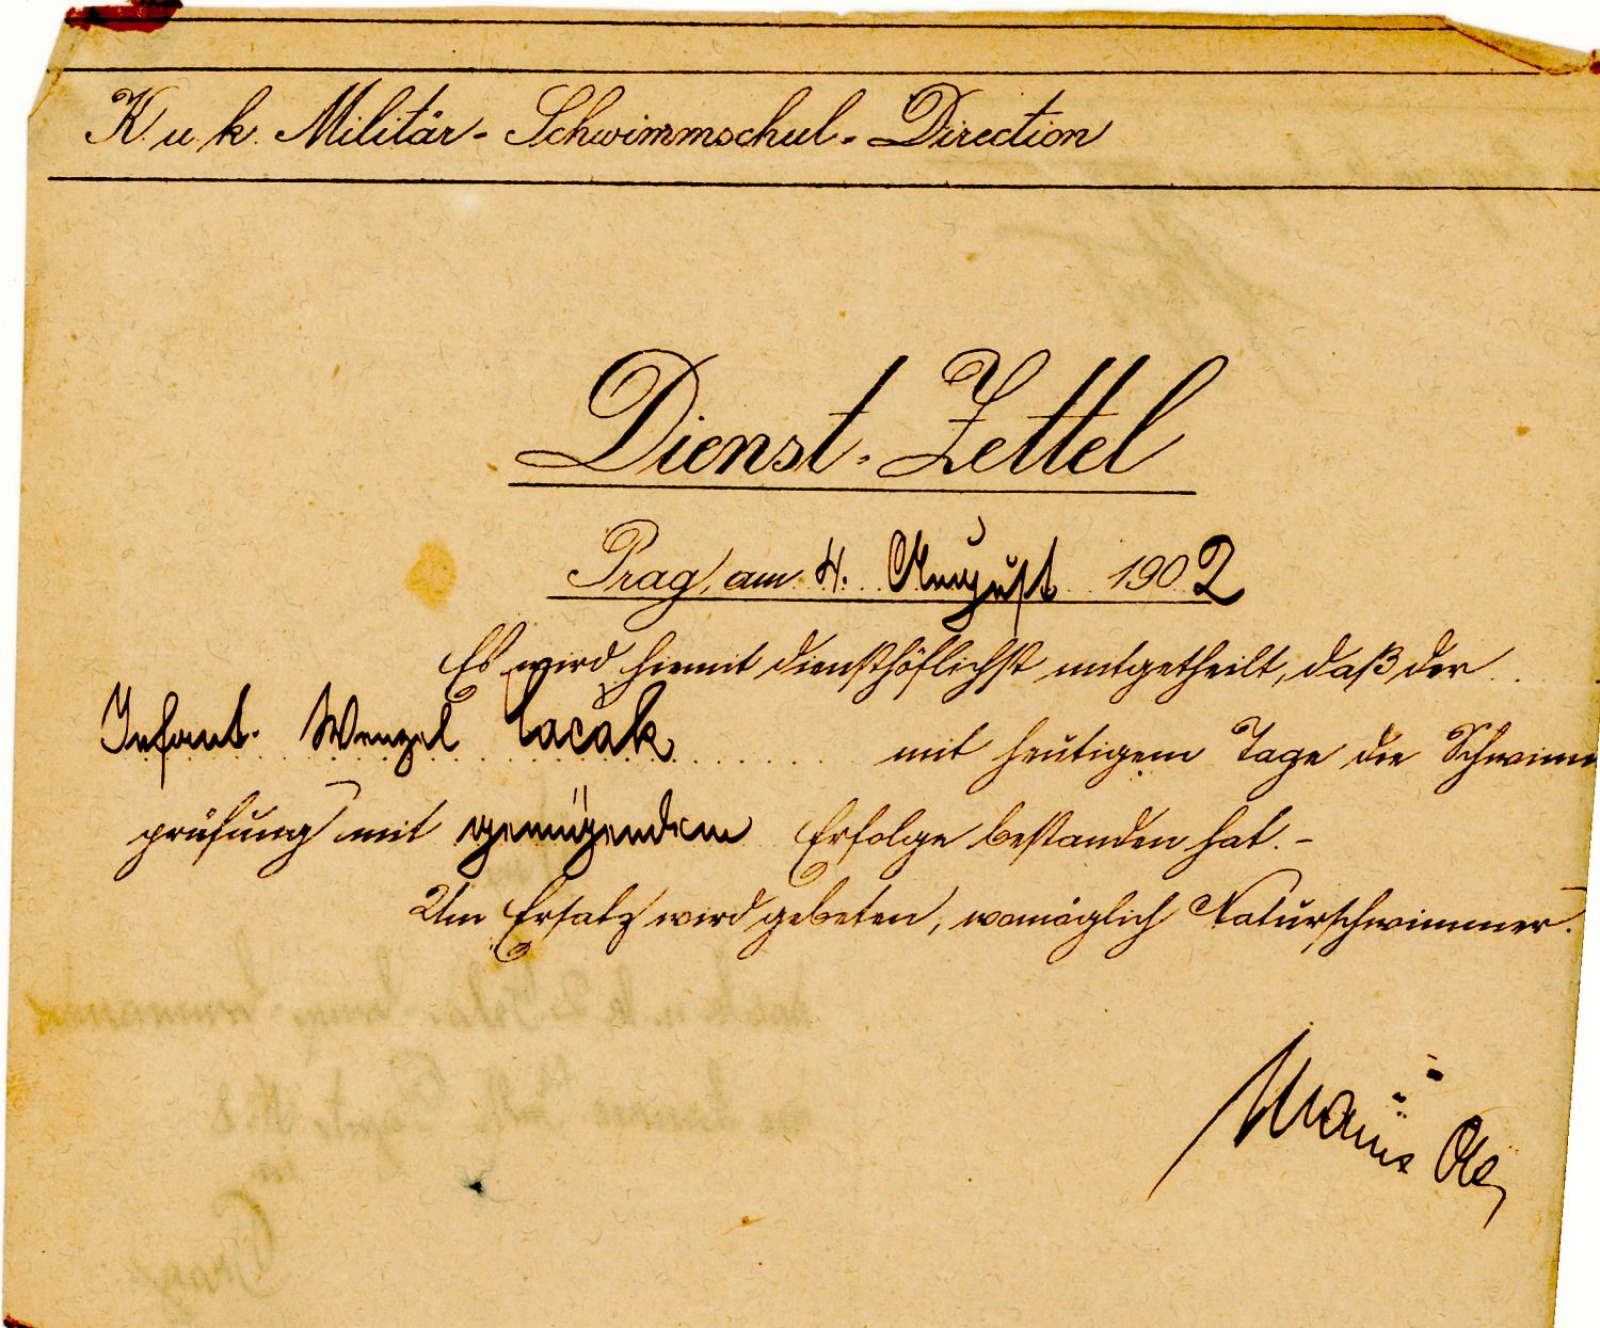 K. u. k. Militär-Schwimmschul-Direction
Dienst-Zettel
Prag, am 4. August 1902
Es wird hiemit diensthöflichst mitgetheilt, daß der
Infant. Wenzel Cacak mit heutigem Tage die Schwimm
prüfung mit genügendem Erfolge bestanden hat. -
Um Ersatz wird gebeten, womöglich Naturschwimmer.